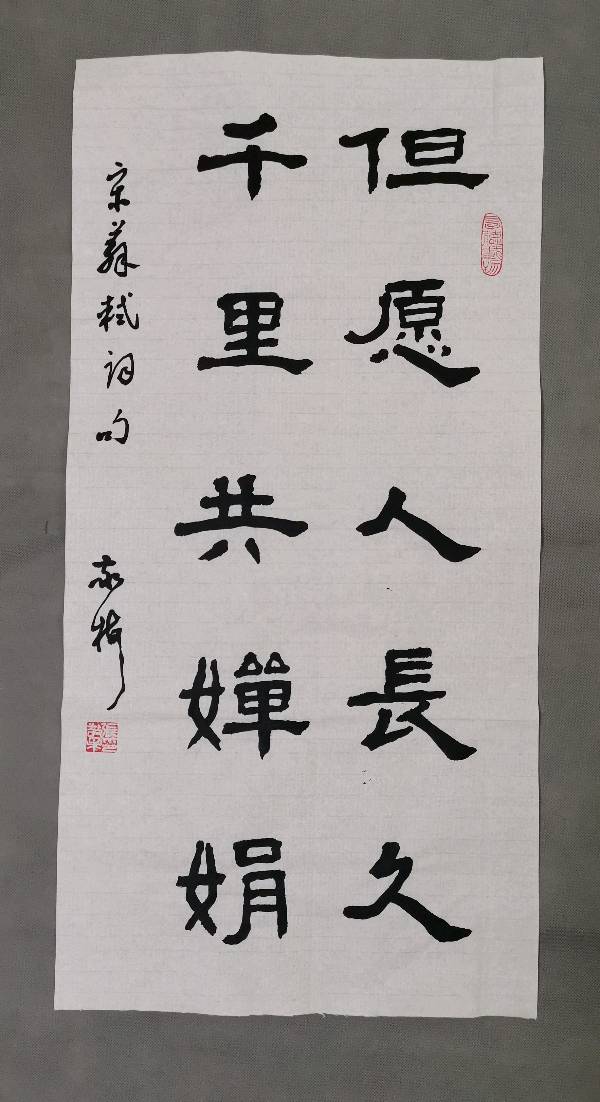 但愿人長久
千里共嬋娟
宋蘇軾词句